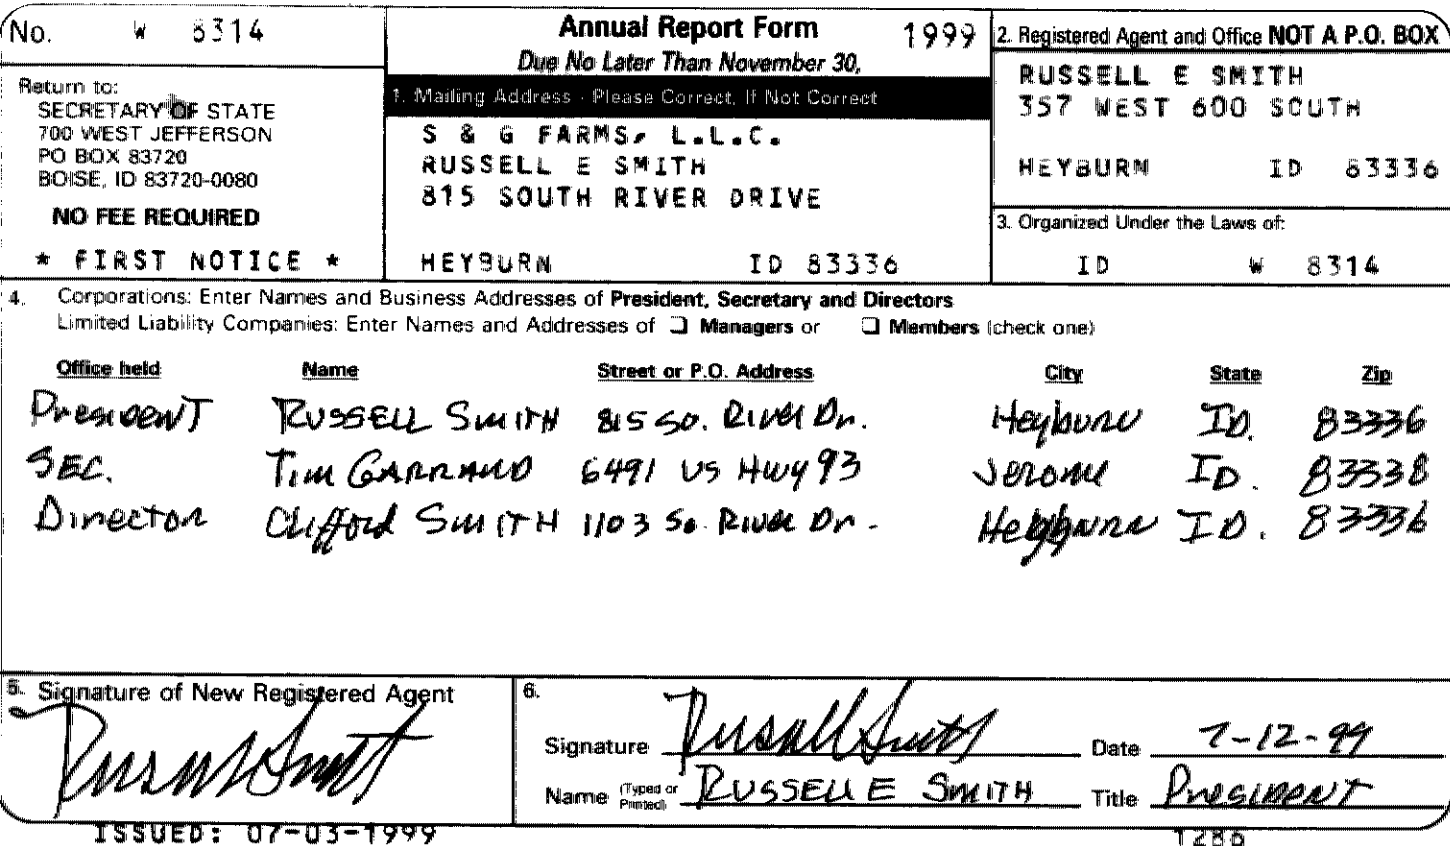 No. W 8314
Return to:
SECRETARY OF STATE
700 WEST JEFFERSON
PO BOX 83720
BOISE, ID 83720-0080
NO FEE REQUIRED
* FIRST NOTICE *
Annual Report Form 1999
Due No Later Than November 30,
1. Mailing Address - Please Correct, If Not Correct
S & G FARMS, L.L.C.
RUSSELL E SMITH
815 SOUTH RIVER DRIVE
HEYBURN ID 83336
2. Registered Agent and Office NOT A P.O. BOX
RUSSELL E SMITH
357 WEST 600 SOUTH
HEYBURN ID 83336
3. Organized Under the Laws of:
ID W 8314
4. Corporations: Enter Names and Business Addresses of President, Secretary and Directors
Limited Liability Companies: Enter Names and Addresses of ❑ Managers or ❑ Members (check one)
Office held Name Street or P.O. Address City State Zip
President Russell Smith 815 So. River Dr. Heyburn ID. 83336
Sec. Tim Garrand 6491 US Hwy 93 Jerome ID. 83338
Director Clifford Smith 1103 So. River Dr. Heyburn ID. 83336
5. Signature of New Registered Agent
6.
Signature Russell Smith Date 7-12-99
Name (Typed or Printed) Russell E Smith Title President
ISSUED: 07-03-1999 1286